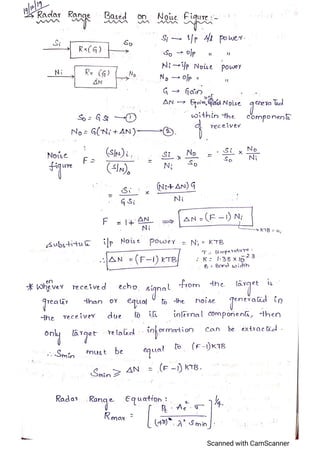 Radar Range Based on Noise Figure :-
Si → i/p power.
Si
Rx (G)
So
So → o/p " "
Ni → i/p Noise power
Ni
Rx (G)
ΔN
No
No → o/p "
G → Gain
ΔN → Noise generated
within the components
of receiver
So = G Si —①
No = G(Ni + ΔN) —②
Noise figure F = (S/N)i / (S/N)o = Si/Ni × No/So = Si/So × No/Ni
= Si/G Si × (Ni + ΔN) G/Ni
F = 1 + ΔN/Ni ⇒ ΔN = (F - 1) Ni
Substitute i/p Noise power = Ni = KTB
T = temperature
∴ ΔN = (F-1) KTB
K = 1.38 × 10⁻²³
B = Band width
* Whenever received echo signal from the target is
greater than or equal to the noise generated in
the receiver due to its internal components, then
only target related information can be extracted.
∴ Smin must be equal to (F-1)KTB
Smin ≥ ΔN = (F-1) KTB.
Radar Range Equation :
Rmax = [ Pt · Ae² · σ / (4π) · λ² Smin ]^1/4
Scanned with CamScanner